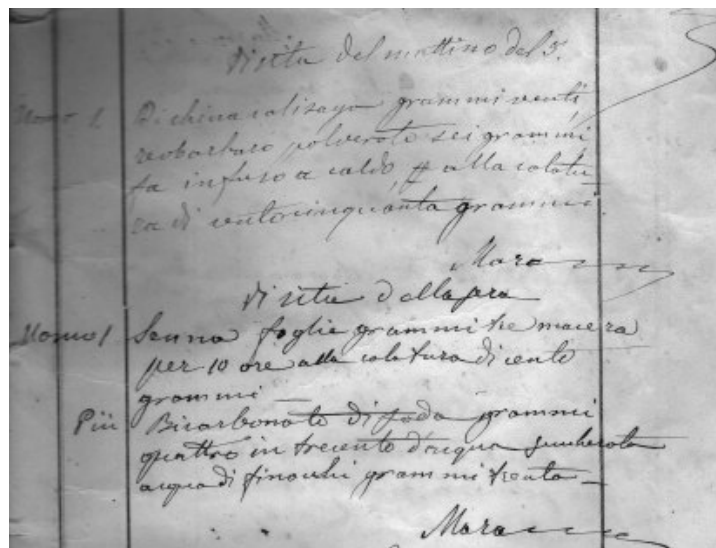 Visita del mattino del 5.
Uomo 1 Di china calisaya grammi venti
reobarbaro polverato sei grammi
fa infuso a caldo # alla colatu
ra di centocinquanta grammi.
Mara
Visita della sera
Uomo 1 Senna foglie grammi tre macera
per 10 ore alla colatura di cento
grammi —
Più Bicarbonato di soda grammi
quattro in trecento d'acqua zuccherata
acqua di finocchi grammi trenta —
Mara